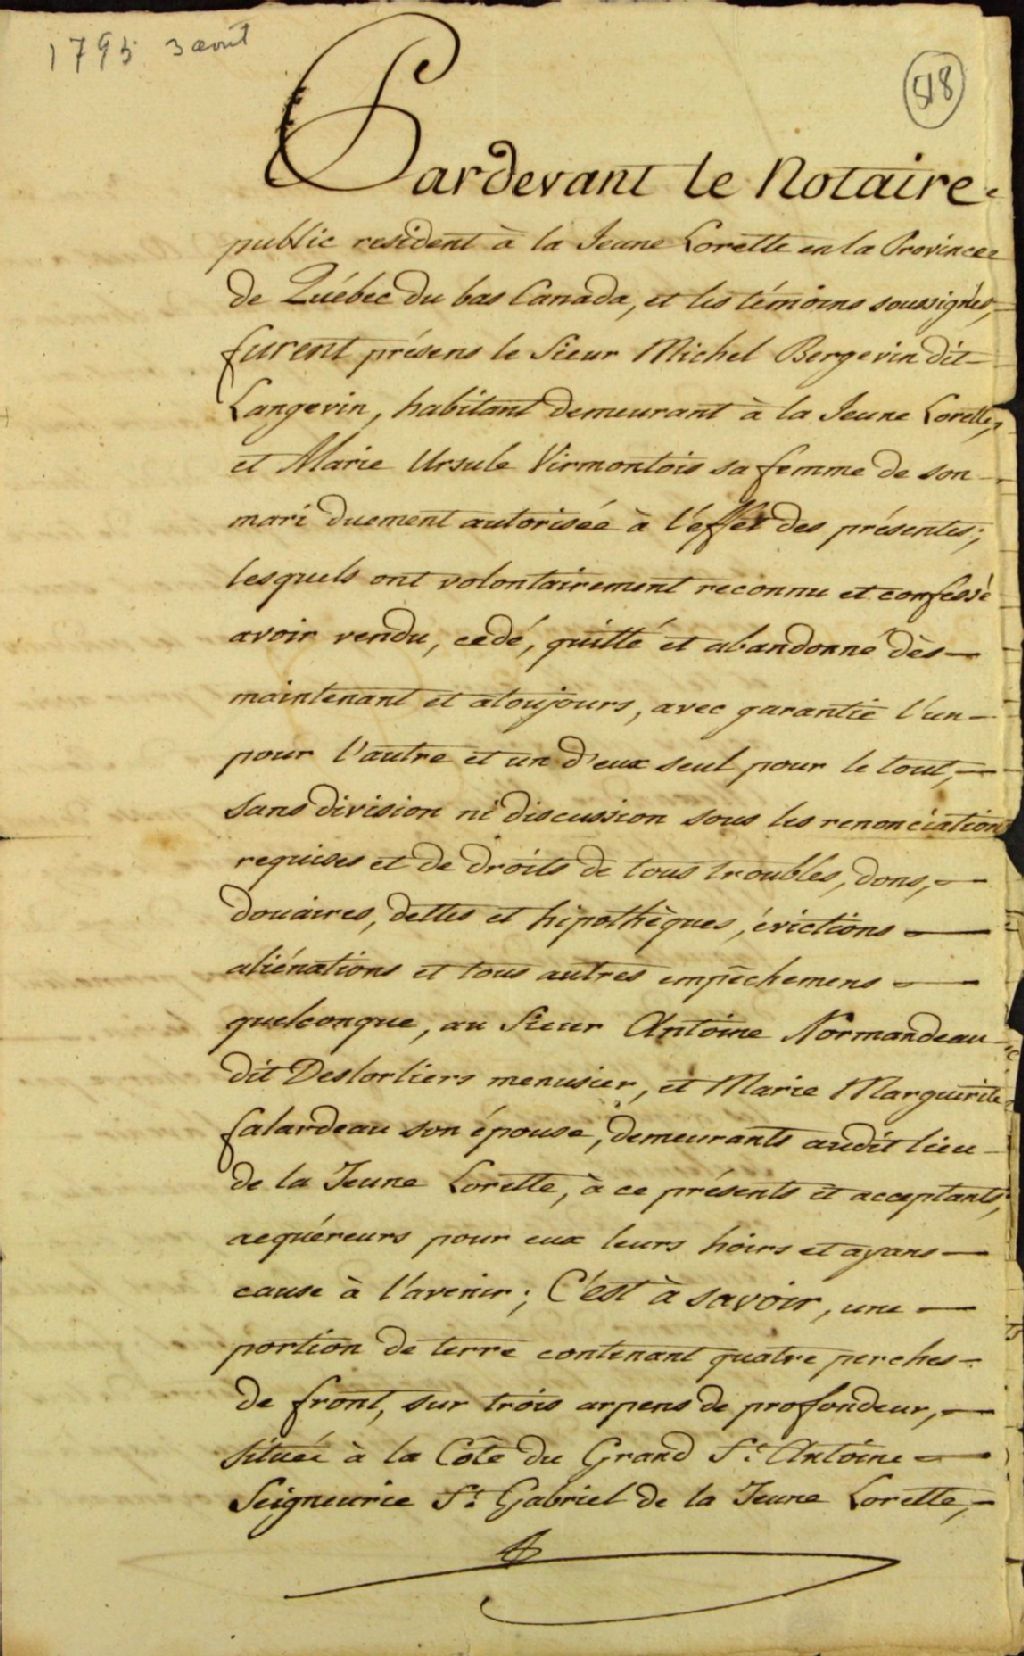 1795. 3 août
518
Pardevant le Notaire
public resident à la Jeune Lorette en la Province
de Québec du bas Canada, et les témoins soussignés,
furent présens le Sieur Michel Bergevin dit
Langevin, habitant demeurant à la Jeune Lorette,
et Marie Ursule Virmontois sa femme de son
mari duement autorisée à l'effet des présentes;
lesquels ont volontairement reconnu et confessé
avoir vendu, cedé, quitté et abandonné dès
maintenant et atoujours, avec garantie l'un
pour l'autre et un d'eux seul pour le tout,
sans division ni discussion sous les renonciations
requises et de droits de tous troubles, dons,
douaires, dettes et hipothèques, évictions
aliénations et tous autres empêchemens
quelconque, au Sieur Antoine Normandeau
dit Deslorliers menusier, et Marie Marguerite
falardeau son épouse, demeurants audit lieu
de la Jeune Lorette, à ce présents et acceptants,
aequéreurs pour eux leurs hoirs et ayans
cause à l'avenir; C'est à savoir, une
portion de terre contenant quatre perches
de front, sur trois arpens de profondeur,
située à la Côte du Grand St. Antoine
Seigneurie St. Gabriel de la Jeune Lorette,